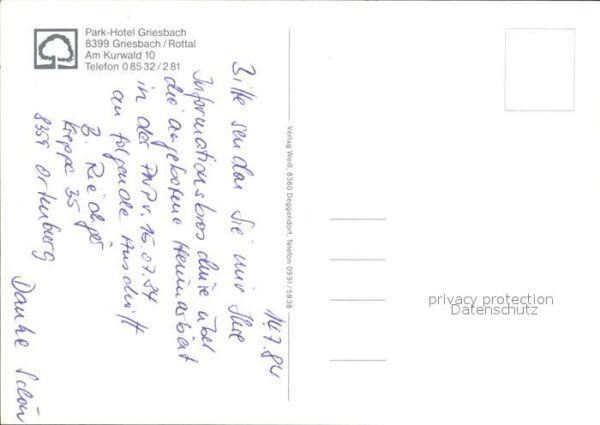 Park-Hotel Griesbach
8399 Griesbach/Rottal
Am Kurwald 10
Telefon 0 85 32 / 2 81
14.7.84
Bitte senden Sie mir Ihre
Informationsbroschüre über
die angebotene Heimarbeit
in der PNP v. 15.07.84
an folgende Anschrift
B. Riediger
35
8359 Ortenburg
Danke Schön
Verlag Weiß, 8360 Deggendorf, Telefon 09 91 / 59 38
privacy protection
Datenschutz